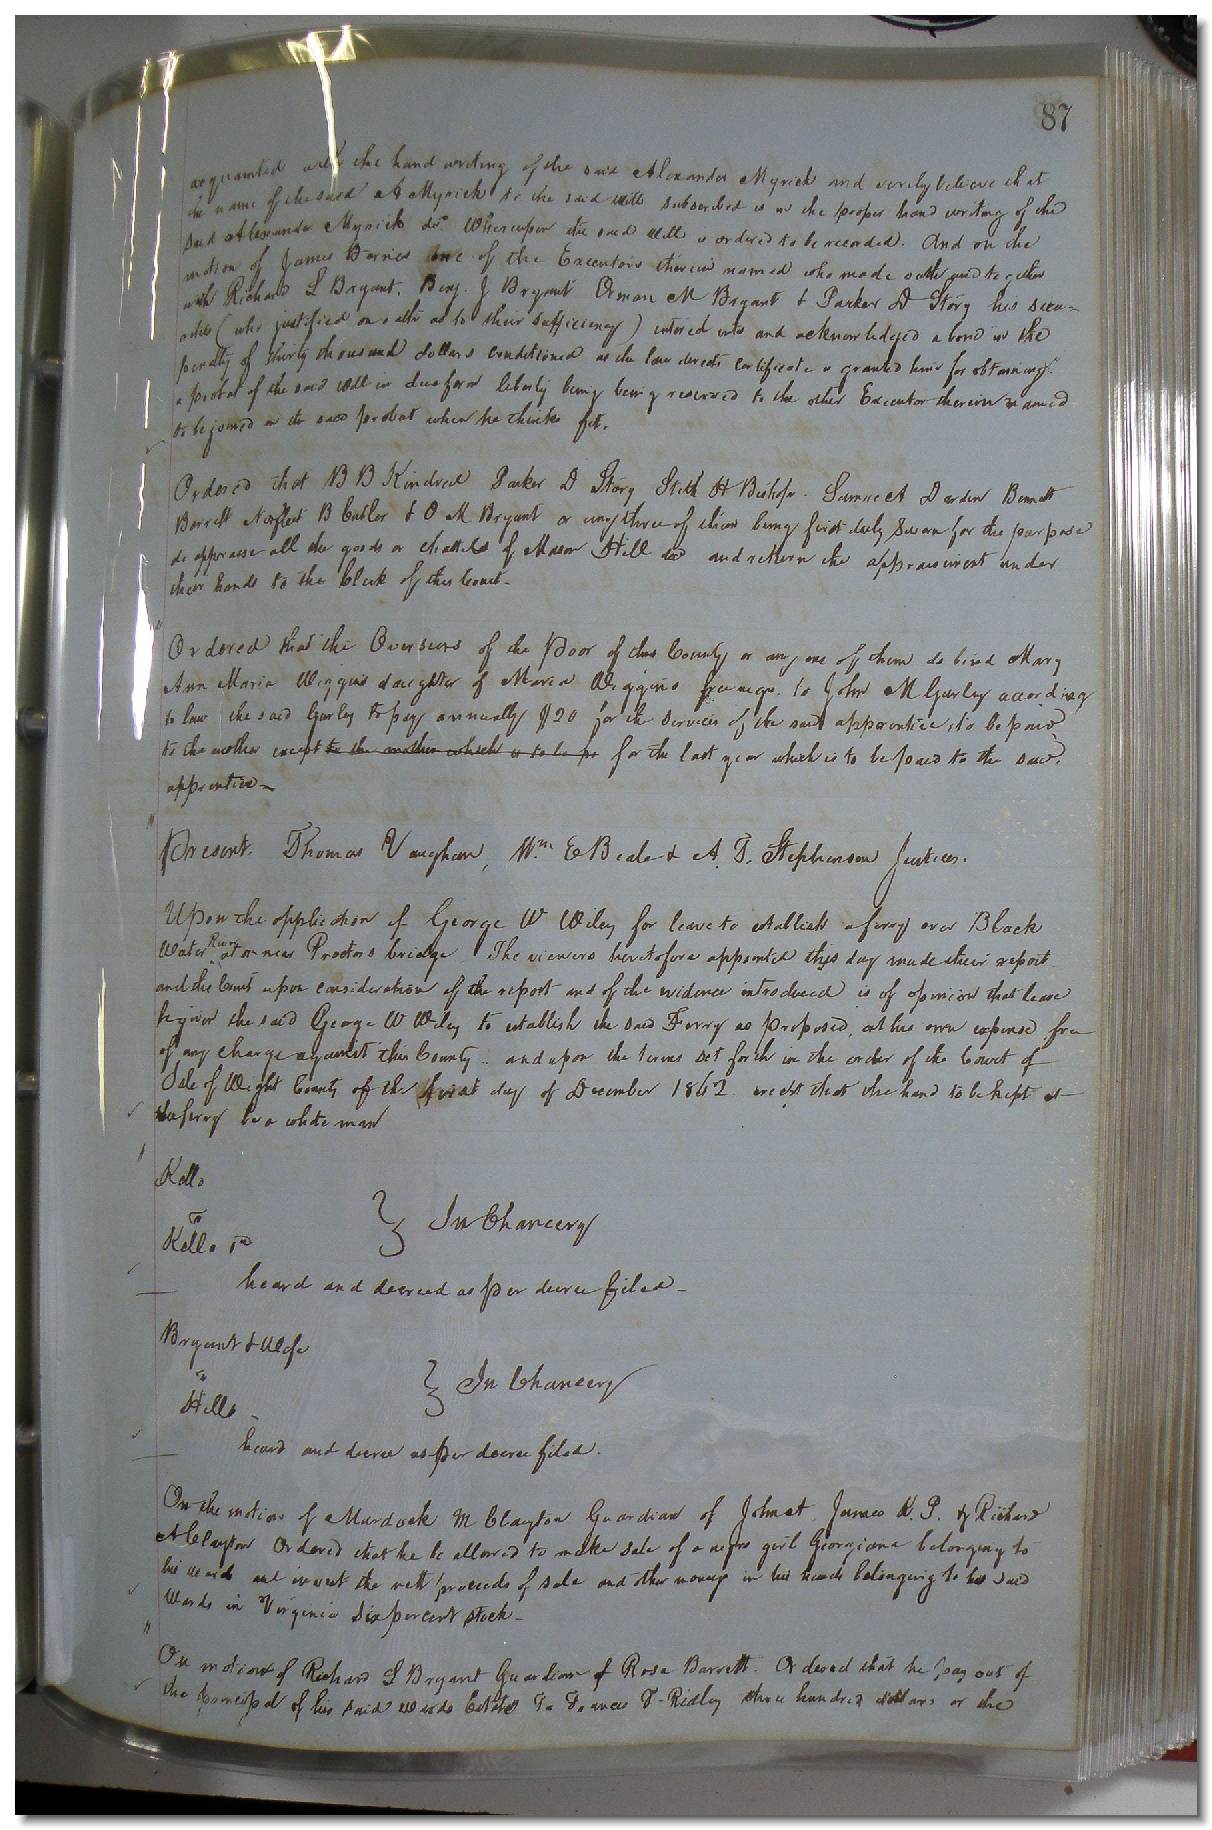 87
acquainted with the hand writing of the said Alexander Myrick and verily believe that
the name of the said A Myrick to the said will subscribed is in the proper hand writing of the
said Alexander Myrick decd Whereupon the said will is ordered to be recorded. And on the
motion of James Barnes one of the Executors therein named who made oath and together
with Richard L Bryant, Benj. J Bryant Orman M Bryant & Parker D Story his secu-
rities (who justified on oath as to their sufficiency) entered into and acknowledged a bond in the
penalty of thirty thousand dollars conditioned as the law directs certificate is granted him for obtaining
a probat of the said will in due form liberty being being reserved to the other Executor therein named
to be joined in the said probat when he thinks fit.
Ordered that B B Kindred Parker D Story Stith H Bishop. Samuel A Darden Bennett
Barrett Norfleet B Butler & O M Bryant or any three of them being first duly sworn for the purpose
do appraise all the goods or chattels of Mason Hill decd and return the appraisement under
their hands to the Clerk of this Court-
Ordered that the Overseers of the Poor of this County or any one of them do bind Mary
Ann Maria Wiggins daughter of Maria Wiggins free negro. to John M Gurley according
to law the said Gurley to pay annually $20 for the services of the said apprentice, to be paid
to the mother except to the mother which is to be pa for the last year which is to be paid to the said.
apprentice-
Present. Thomas Vaughan, Wm E Beale & A. T. Stephenson Justices.
Upon the application of George W Wiley for leave to establish a ferry over Black
Water River at or near Proctors bridge. The viewers heretofore appointed this day made their report
and the Court upon consideration of the report and of the evidence introduced is of opinion that leave
be given the said George W Wiley to establish the said Ferry as proposed, at his own expense free
of any charge against this County. and upon the terms set forth in the order of the Court of
Isle of Wight County of the first day of December 1862 except that the hand to be kept at
the ferry be a white man
Kello
vs
Kello &c
} In Chancery
heard and decreed as per decree filed-
Bryant & Wife
vs
Hill
} In Chancery
heard and decree as per decree filed.
On the motion of Murdock M Clayton Guardian of John A. James K. P. & Richard
A Clayton Ordered that he be allowed to make sale of a negro girl Georgiana belonging to
his wards and invest the nett proceeds of sale and other moneys in his hands belonging to his said
Wards in Virginia Six percent stock-
On motion of Richard L Bryant Guardian of Rosa Barrett. Ordered that he pay out of
the principal of his said wards Estate To Frances T. Ridley three hundred dollars or the